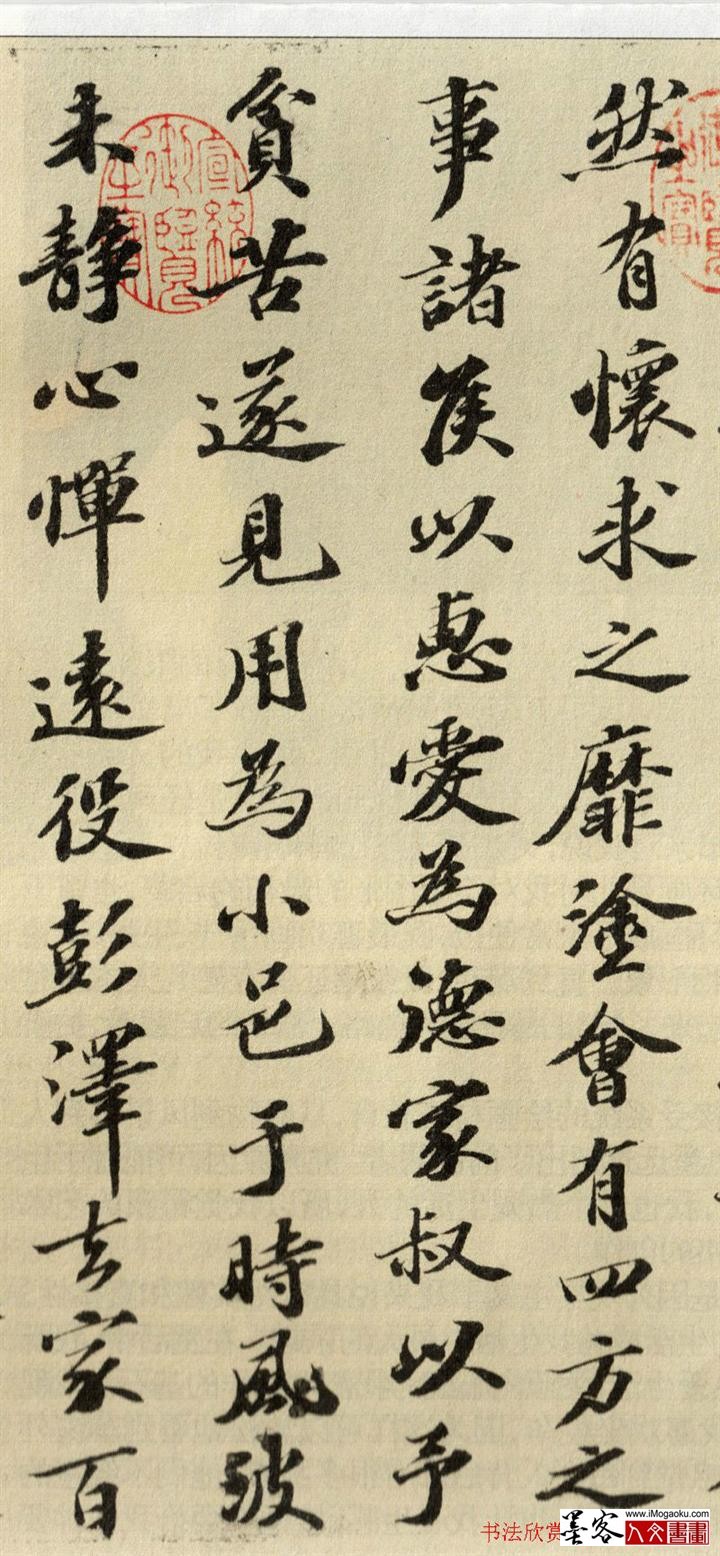 然有懷求之靡塗會有四方之
事諸侯以惠愛為德家叔以予
貧苦遂見用為小邑于時風波
未靜心憚遠役彭澤去家百
宣統
御覽
之寶
书法欣赏
墨客
www.iMogaoku.com
人文書畫